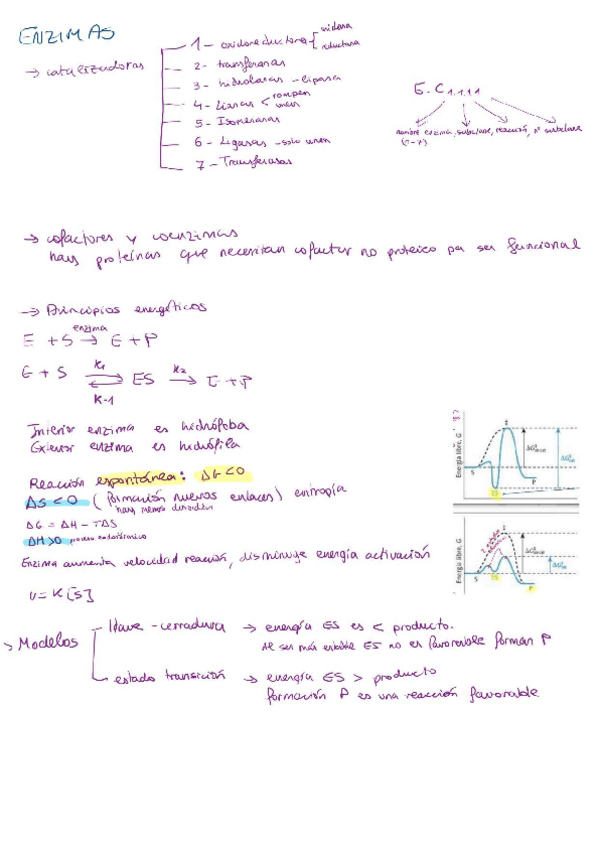 ENZIMAS
→ catalizadoras
1- oxidoreductora { oxidora
reductora
2- transferasas
3- hidrolasas - lipasa
4- Liasas < rompen
unen
5- Isomerasas
6- Ligasas - solo unen
7- Transferasas
E.C 1.1.1.1
nombre enzima, subclase, reacción, nº subclase
(1-7)
→ cofactores y coenzimas
hay proteínas que necesitan cofactor no proteico pa ser funcional
→ Principios energéticos
E + S → E + P
enzima
E + S ⇌ ES → E + P
K1
K-1
K2
Interior enzima es hidrófoba
Exterior enzima es hidrófila
Reacción espontánea: ΔG<0
ΔS<0 (formación nuevos enlaces) entropía
hay menos desorden
ΔG = ΔH - TΔS
ΔH>0 proceso endotérmico
Enzima aumenta velocidad reacción, disminuye energía activación
v = K[S]
→ Modelos
llave - cerradura → energía ES es < producto.
Al ser más estable ES no es favorable forman P
estado transición → energía ES > producto
formación P es una reacción favorable
Energía libre, G
S
ES
‡
P
Energía libre, G
S
ES
‡
P